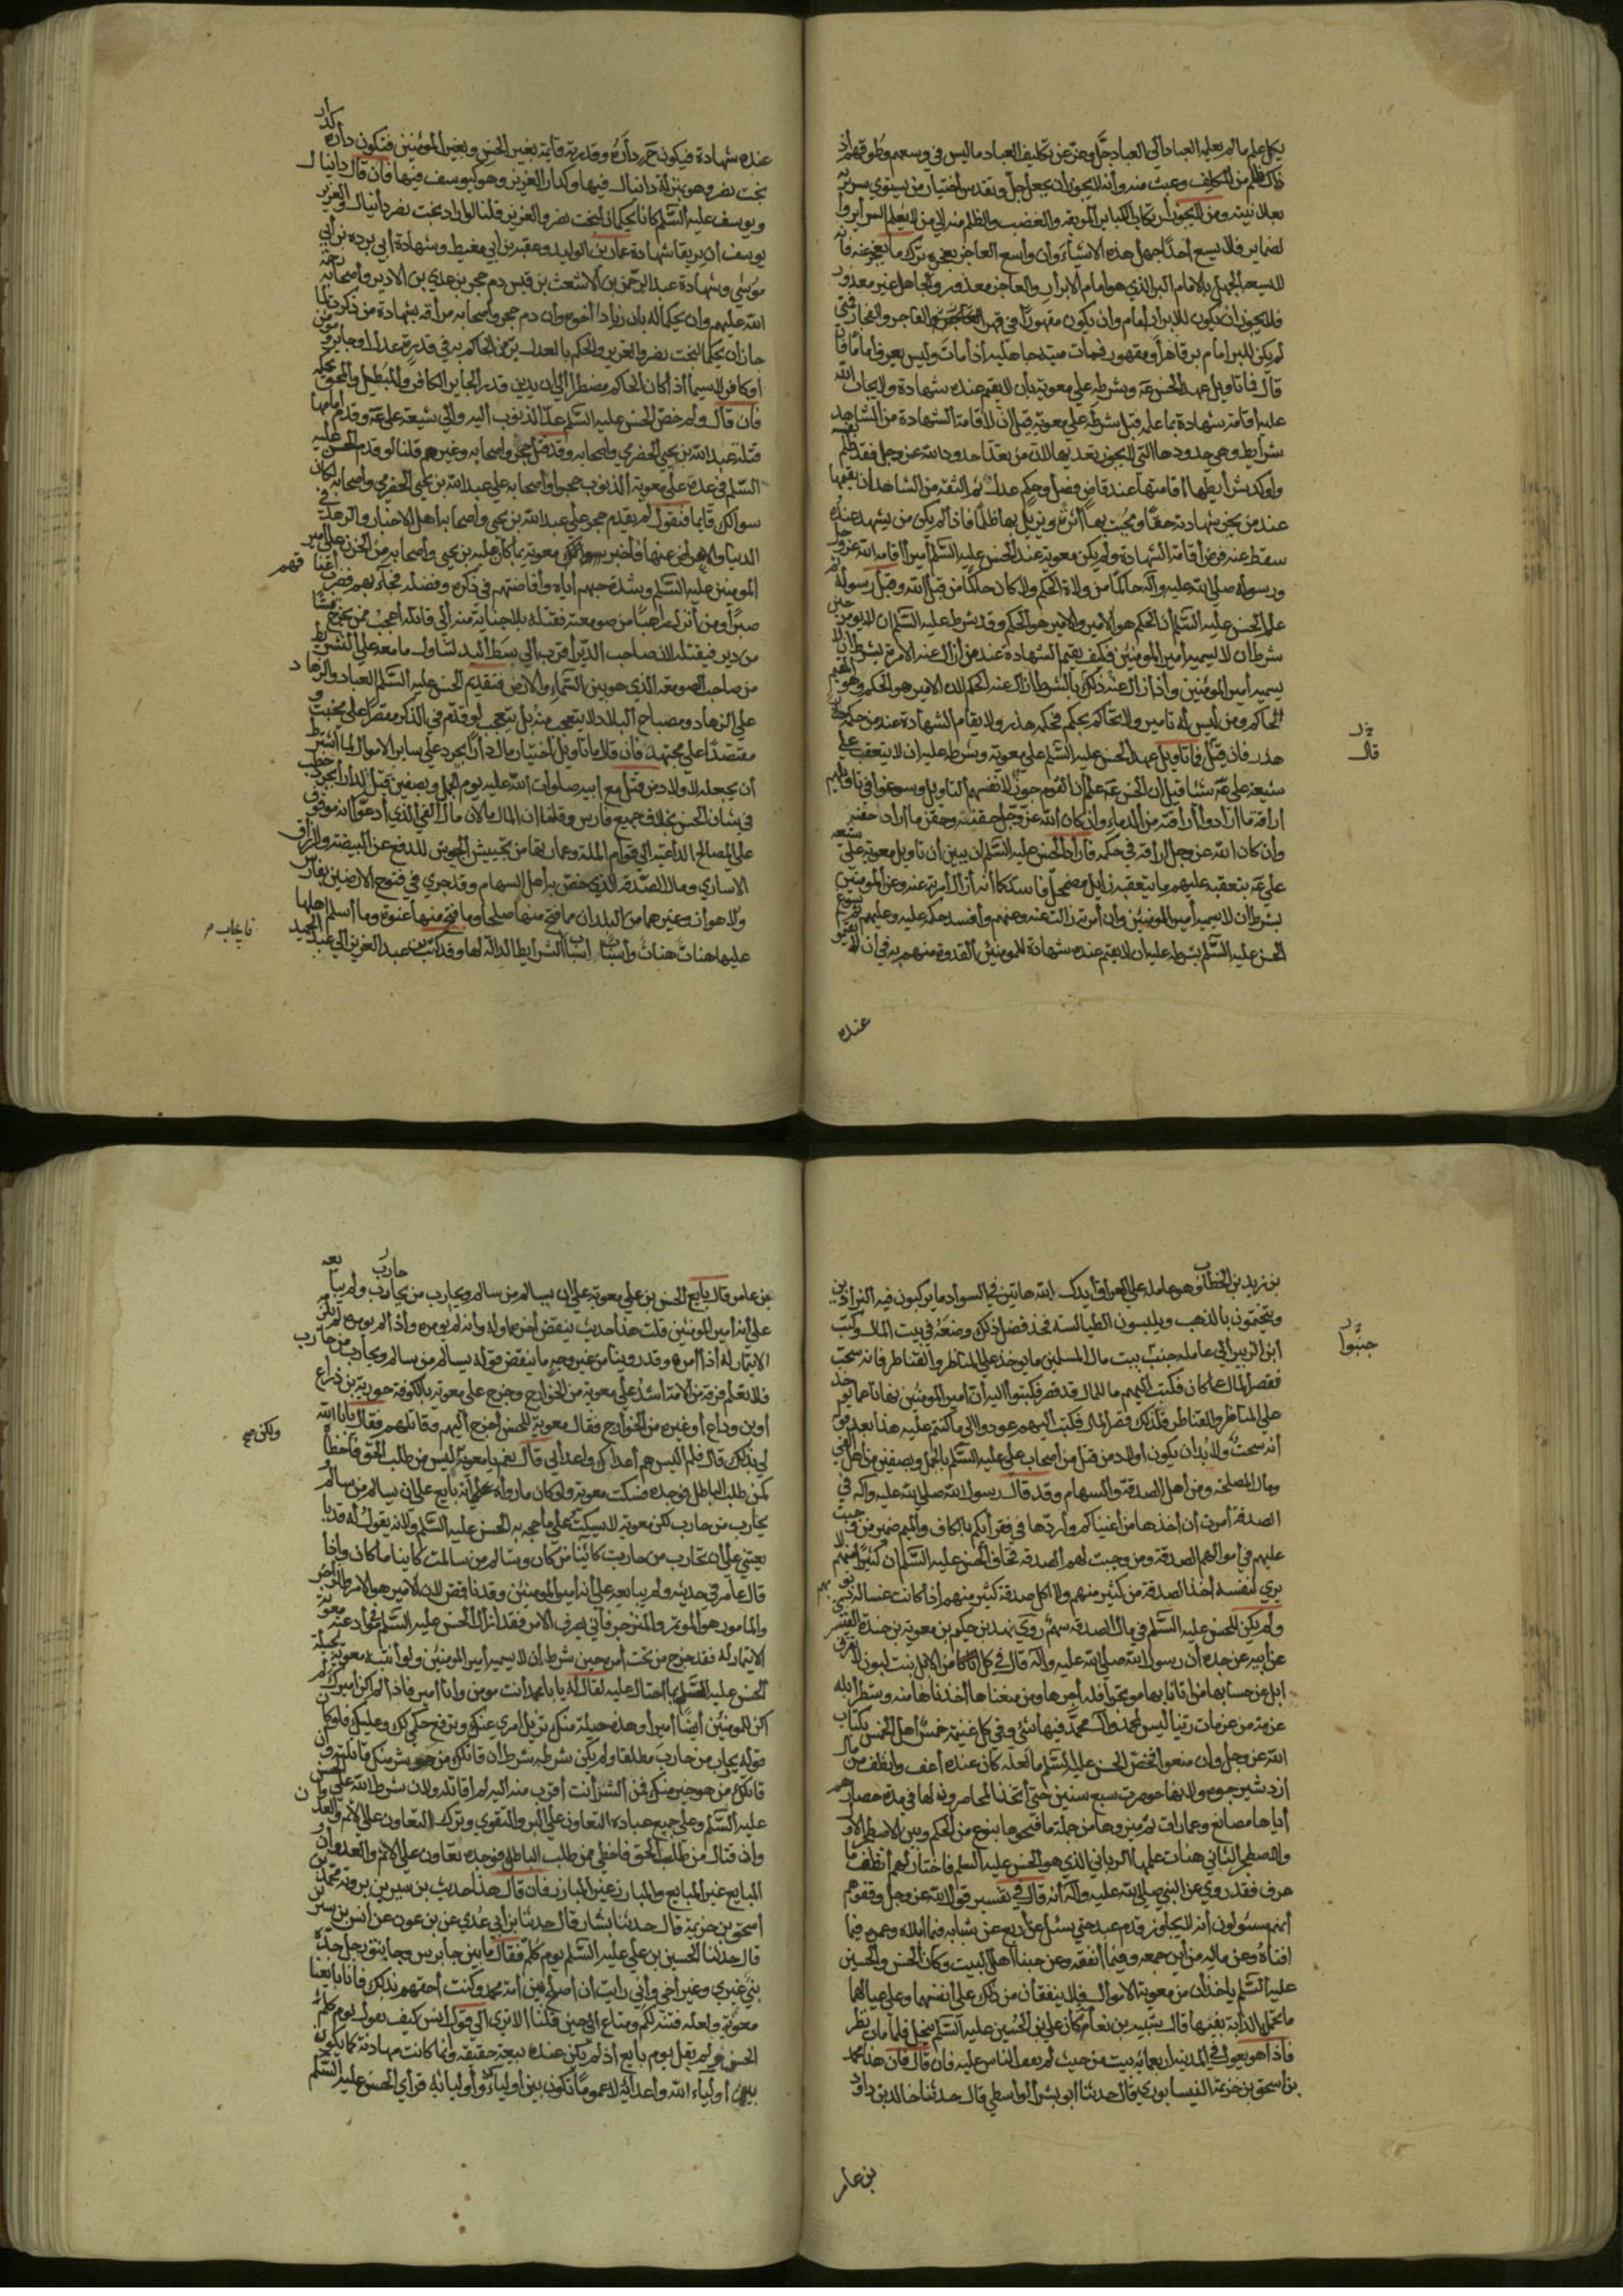 يكل علم ما لم يعلمه العباد الى العباد جل وعز عن تكليف العباد ما ليس في وسعهم وطوقهم اذ
ذاك ظلم من المكلف وعبث منه وأنه لا يجوز ان يجعل جل وتقدس اختيار من يستوي سريرته
بعلانيته ومن لا يجوز ارتكاب الكباير الموبقه والغصب والظلم منه الى من لا يعلم السراير وا
لضماير فلا يسع أحدا جهل هذه الاشياء وأن وأسع العاجز بعجزه ترك ما يعجز عنه فانه
لا يسعه الجهل بالامام البر الذي هو امام الابرار والعاجز معذور والجاهل غير معذور
فلا يجوز ان يكون للابرار امام وان يكون مقهورا في قهر الفاجر والفجار فمتى
لم يكن للبر امام بر قاهر أو مقهور فمات ميتة جاهليه اذا مات وليس يعرف امامه فان
قال فما تاويل عهد الحسن عه وبشرطه على معويه بان لا يقيم عنده شهادة ولا يجاب الله
عليه اقامة شهادة بما علمه قبل شرطه على معويه قيل ان لاقامة الشهادة من الشاهد
شرايط وهي حدودها التي لا يجوز تعديها لان من تعدا حدود الله عز وجل فقد ظلم نفسه
وأوكد شرايطها اقامتها عند قاض فصل وحكم عدل ثم الثقه من الشاهد ان يقيمها
عند من يجيز بشهادته حقا ويميت بها اثرة ويزيل بها ظلما فاذا لم يكن من يشهد عنده
سقط عنه فرض اقامة الشهادة ولم يكن معوية عند الحسن عليه السلم أميرا اقامه الله عز وجل
ورسوله صلى الله عليه وآله حاكما من ولاة الحكم ولا كان حاكما من قبل الله وقبل رسوله ثم
علم الحسن عليه السلم ان الحكم هو الامير والامير هو الحكم وقد شرط عليه السلم ان لا يومر حين
شرط ان لا يسميه أمير المومنين فكيف يقيم الشهادة عند من أزال عنه الامرة بشرط ان لا
يسميه أمير المومنين وأذا زال عنه ذلك بالشرط ازال عنه الحكم لان الامير هو الحكم وهو المقيم
الحاكم ومن ليس له تامير ولا تحاكم يحكم فحكمه هذر ولا يقام الشهادة عند من حكمه
هذر فان قيل فما تاويل عهد الحسن عليه السلم على معوية وشرط عليه ان لا يتعقب على
شيعة علي عه شيئا قيل ان الحسن عه علم أن القوم جوزوا لانفسهم التاويل وسوغوا في تاويلهم
اراقة ما ارادوا اراقته من الدماء وأن كان الله عز وجل حقنه وحقن ما ارادوا حقنه
وأن كان الله عز وجل اراقه في حكمه فاراد الحسن عليه السلم ان يبين أن تاويل معوية على شيعه
علي عه بتعقبه عليهم ما يتعقبه زايل مضمحل فاسد كما أنه أزال أمرته عنه وعن المومنين
بشرط ان لا يسميه أمير المومنين وان أمرته زالت عنه وعنهم وأفسد حكمه عليه وعليهم ثم سوغ
الحسن عليه السلم بشرطه عليه ان لا يقيم عنده شهادة للمومنين القدوة منهم به في ان لا يقيموا
قال
عنده
عنده شهادة فيكون حينئذ داره وقدرته قايمة بغير الحسن وبغير المومنين فتكون داره كدار
بخت نصر وهو بمنزلة دانيال فيها وكدار العزيز وهو كيوسف فيها فان قال دانيال
ويوسف عليه السلم كانا يحكمان لبخت نصر والعزيز قلنا لو اراد بخت نصر دانيال والعزيز
يوسف ان يريقا شهادة عمار بن الوليد وعقبه بن ابي معيط وشهادة أبي برده بن أبي
موسى وشهادة عبد الرحمن بن الاشعث بن قيس دم حجر بن عدي بن الادبر وأصحابه رحمة
الله عليهم وان يحكما له بان زيادا أخوه وان دم حجر وأصحابه مراقه بشهادة من ذكرت لما
جاز ان يحكما لبخت نصر والعزيز والحكم بالعدل يرمى الحاكم به في قدرة عدل او جاير أو مومن
أو كافر لا سيما اذا كان الحاكم مضطرا الى ان يدين قدر الجاير الكافر والمبطل والمحق بحكمه
فان قال ولم خص الحسن عليه السلم عد الذنوب اليه والى شيعة علي عه وقدم امامها
قتلة عبد الله بن يحيى الحضرمي واصحابه وقد قتل حجر واصحابه وغيرهم قلنا لو قدم الحسن عليه
السلم في عده على معويه الذنوب حجرا وأصحابه على عبد الله بن يحيى الحضرمي وأصحابه لكان
سوالك قايما فتقول لم يقدم حجر على عبد الله بن يحيى واصحابه اهل الاخيار والزهد في
الدنيا والاعراض عنها فاخبر معوية بما كان عليه بن يحيى وأصحابه من الحزن على أمير
المومنين عليه السلم وشدة حبهم اياه وأفاضتهم في ذكره وفضله فجاء بهم فضرب أعناقهم
صبرا ومن أنزل راهبا من صومعته فقتله بلا جناية منه الى قاتله أعجب ممن يخرج قسا
من دير فيقتله لان صاحب الدير أقرب الى بسط اليد لتناول ما معه على التشريط
من صاحب الصومعه الذي هو بين السماء والارض فتقديم الحسن عليه السلم العباد والزهاد
على الزهاد ومصباح البلاد لا يتعجب منه بل يتعجب لو قدم في الذكر مقصرا على مخبت و
مقتصدا على مجتهد فان قال ما تاويل اختيار مال دارابجرد على ساير الاموال لما اشترط
أن يجعله لاولاد من قتل مع أبيه صلوات الله عليه يوم الجمل وبصفين قيل لدارابجرد خطب
في شان الحسن بخلاف جميع فارس وقلنا ان المال مالان مال الفي الذي أدعوا انه موقوف
على المصالح الداعيه الى قوام المله وعمارتها من تجييش الجيوش للدفع عن البيضة ولارزاق
الاسارى ومال الصدقه الذي خص به أهل السهام وقد جرى في فتوح الارضين بفارس
ولاهواز وغيرهما من البلدان مما فتح منها صلحا وما فتح منها عنوة وما أسلم أهلها
عليها هنات هنات وأسباب اسباب الشرايط الدالة لها وقد كتب بن عبد العزيز الى عبد الحميد
فا يجاب
بن زيد بن الخطاب وهو عامله على العراق أيدك الله هاتين في السواد ما يركبون فيه البراذين
ويتختمون بالذهب ويلبسون الطيالسه فخذ فضل ذلك وضعه في بيت المال وكتب
ابن الزبير الى عامله جنب بيت مال المسلمين ما يوخذ على المناظر والقناطر فانه سحت
فقصر المال عما كان فكتب اليهم ما للمال قد قصر فكتبوا اليه أن أمير المومنين نهانا عما يوخذ
على المناظر والقناطر فلذلك قصر المال فكتب اليهم عودوا الى ما كنتم عليه هذا بعد قوله
أنه سحت ولا بد ان يكون اولاد من قتل من أصحاب علي عليه السلم بالجمل وبصفين من اهل الفي
ومال المصلحة ومن أهل الصدقة والسهام وقد قال رسول الله صلى الله عليه وآله في
الصدقة أمرت أن أخذها من أغنياكم واردها في فقرأيكم بالكاف والميم ضمير من وجبت
عليهم في أموالهم الصدقة ومن وجبت لهم الصدقه فخاف الحسن عليه السلم ان كثيرا منهم لا
يرى لنفسه أخذ الصدقة من كثير منهم ولا أكل صدقة كثير منهم أذا كانت غساله ذنوبهم
ولم يكن للحسن عليه السلم في مال الصدقه سهم روي بهز بن حكيم بن معوية بن حيدة القشيري
عن أبيه عن جده أن رسول الله صلى الله عليه وآله قال في كل أربعين من الابل بنت لبون لا يفرق
ابل عن حسابها من اتانا بها موتجرا فله أجرها ومن منعناها أخذناها منه وشطر أبله
عزمة من عزمات ربنا ليس لمحمد وآل محمد فيها شي وفي كل غنيمة خمس أهل الخمس بكتاب
الله عز وجل وان منعوا فخص الحسن عليه السلم ما لعله كان عنده أعف وانظف من مال
ازدشير جوره ولانها حوصرت سبع سنين حتى أتخذ المحاصرون لها في مدة حصارهم
أياها مصانع وعمارات ثم ميزوها من جملة ما فتحوها بنوع من الحكم وبين الاصطخر الاول
والاصطخر الثاني هنات علمها الرباني الذي هو الحسن عليه السلم فاختار لهم أنظف ما
عرف فقد روي عن النبي صلى الله عليه وآله أنه قال في تفسير قول الله عز وجل وقفوهم
أنهم مسئولون أنه لا يجاوز قدم عبد حتى يسئل عن أربع عن شبابه فيما ابلاه وعمره فيما
افناه وعن ماليه من اين جمعه وفيما أنفقه وعن حبنا أهل البيت وكان الحسن والحسين
عليه السلم ياخذان من معوية الاموال فلا ينفقان من ذلك على أنفسهما وعلى عيالهما
ما تحمل الدابة بفيها قال شيبه بن نعامه كان علي بن الحسين عليه السلم يبخل فلما مات نظر
فاذا هو يعول في المدينه اربعمائه بيت من حيث لم يقف الناس عليه فان قال فان هذا محمد
بن اسحق بن خزيمة النيسابوري قال حدثنا ابو بشر الواسطي قال حدثنا خالد بن داود
جنبوا
بن عامر
عن عامر قال بايع الحسن بن علي معوية على ان يسالم من سالم ويحارب من حارب ولم يبايعه
على أنه أمير المومنين قلت هذا حديث ينقض أخره اوله وانه لم يومره وأذا لم يومره لم يلزمه
الايتمار له أذا أمره وقد روينا من غير وجه ما ينقض قوله يسالم من سالم ويحارب من حارب
فلا نعلم فرقة من الامة أشد على معوية من الخوارج وخرج على معويه بالكوفه حويرية بن ذراع
أو بن وداع او غيره من الخوارج فقال معوية للحسن اخرج اليهم وقاتلهم فقال يابا الله
لي بذلك قال فلم أليس هم أعداك واعداي قال نعم يا معوية ليس من طلب الحق فاخطأ
كمن طلب الباطل فوجده فسكت معوية ولو كان ما رواه على أنه بايع على ان يسالم من سالم و
يحارب من حارب لكن معوية لا يسكت على ما حجه به الحسن عليه السلم ولانه يقول له قد با
يعتني على أن تحارب من حاربت كائنا من كان وتسالم من سالمت كاينا ما كان واذا
قال عامر في حديثه ولم يبايعه على أنه أمير المومنين وقد ناقض لان الامير هو الامر والزاجر
والمامور هو الموتمر والمنزجر فابى تصرف الامر فقد أزال الحسن عليه السلم في موادعته معوية
الايتمار له فقد خرج من تحت أمره حين شرط ان لا يسميه أمير المومنين ولو أنتبه معوية بحيلة
الحسن عليه السلم بما احتال عليه لقال له يا با محمد أنت مومن وانا أمير فاذا لم اكن أميرك لم
اكن للمومنين أيضا أميرا وهذه حيلة منك تزيل امري عنك وترفع حكمي لك وعليك فلو كا
ن قوله يحارب من حارب مطلقا ولم يكن شرطه شرط ان قاتلك من هو شر منك قاتلته وأن
قاتلك من هو خير منك في الشر أنت اقرب منه اليه لم اقاتله ولان شرط الله على الحسن
عليه السلم وعلى جميع عباده التعاون على البر والتقوى وترك التعاون على الاثم والعدوان
وان قتال من طلب الحق فاخطي مع من طلب الباطل فوجده تعاون على الاثم والعدوان و
المبايع غير المبايع والموازر غير الموازر فان قال هذا حديث بن سيرين يرويه محمد بن
أسحق بن خزيمة قال حدثنا بشار قال حدثنا بن ابي عدي عن بن عون عن أنس بن سيرين
قال حدثنا الحسين بن علي عليه السلم يوم كلم فقال ما بين جابرس وجابلق رجل جده
نبي غيري وغير أخي وأني رايت أن أصلح بين أمة محمد وكنت أحقهم بذلك فانا بايعنا
معوية ولعله فتنة لكم ومتاع الى حين قلنا الا ترى الى قول انس كيف يقول يوم كلم
الحسن ولم يقل يوم بايع أذ لم يكن عنده بيعة حقيقه وأنما كانت مهادنة كما يكون
بين أولياء الله وأعدائه لا مبايعة تكون بين أوليائه وأوليائه فراى الحسن عليه السلم
ولكن